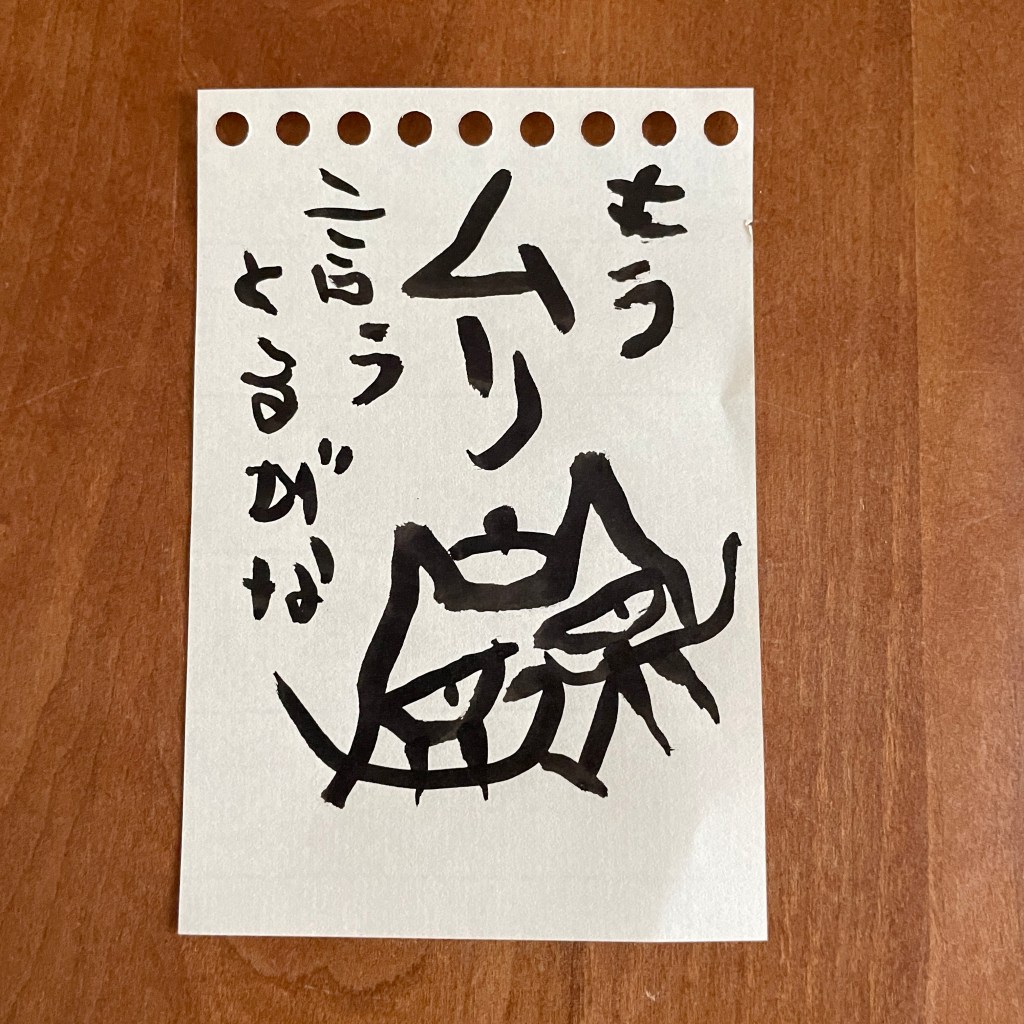 もう
ムリ
言う
とるがな